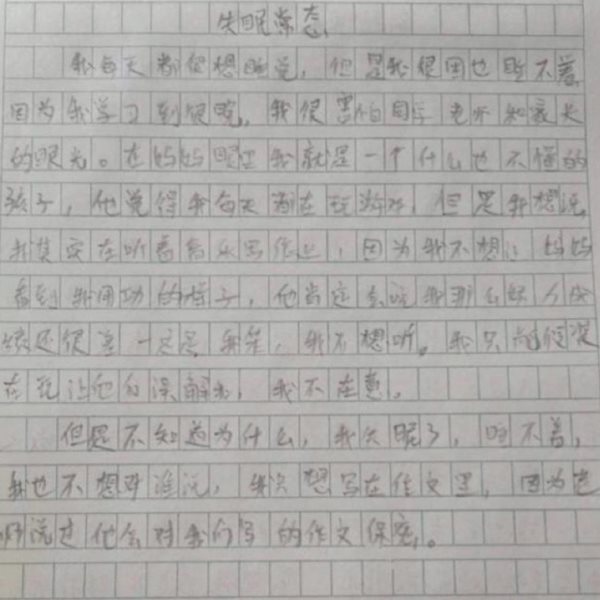 失眠常态
我每天都很想睡觉，但是我很困也睡不着
因为我学习到很晚，我很害怕同学老师和家长
的眼光。在妈妈眼里我就是一个什么也不懂的
孩子，他觉得我每天都在玩游戏，但是我想说
我其实在听着音乐写作业，因为我不想让妈妈
看到我用功的样子，他肯定会说我那么努力成
绩还很差一定是我笨，我不想听。我只能假装
在玩让他们误解我，我不在意。
但是不知道为什么，我失眠了，睡不着，
我也不想对谁说，我只想写在作文里，因为老
师说过他会对我们写的作文保密。